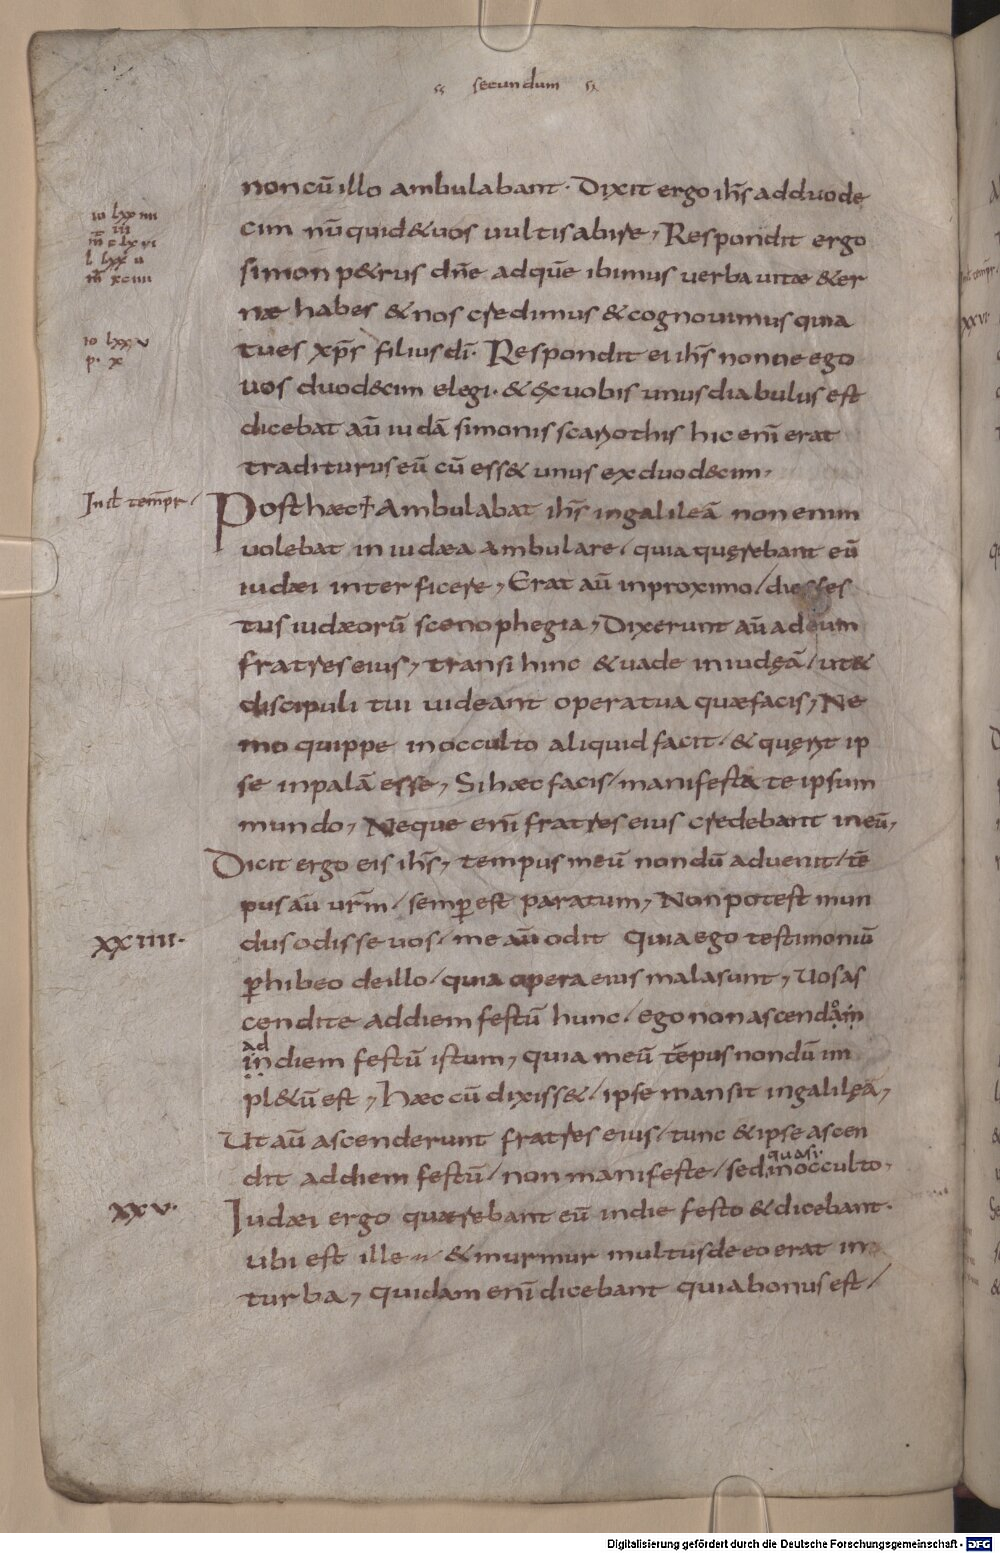 secundum
non cū illo ambulabant· Dixit ergo ihs̄ ad duode
cim nūquid & uos uultis abire, Respondit ergo
simon p&rus dn̄e ad quē ibimus uerba uitæ &er
næ habes & nos credimus & cognouimus quia
tu es xp̄s filius dī· Respondit ei ihs̄ nonne ego
uos duodecim elegi· & ex uobis unus diabulus est
dicebat aū iudā simonis scariothis hic enī erat
traditurus eū cū ess& unus ex duodecim,
Post hæc Ambulabat ihs̄ in galileā non enim
uolebat in iudæa ambulare / quia quęrebant eū
iudæi interficere, Erat aū in proximo / dies fes
tus iudæorū scenophegia, Dixerunt aū ad eum
fratres eius, transi hinc & uade in iudęā / ut &
discipuli tui uideant opera tua quæ facis, Ne
mo quippe in occulto aliquid facit / & quęrit ip
se in palā esse, Si hæc facis / manifesta te ipsum
mundo, Neque enī fratres eius credebant in eū,
Dicit ergo eis ihs̄, tempus meū nondū aduenit / tē
pus aū urm̄ / semp est paratum, Non potest mun
dus odisse uos / me aū odit quia ego testimoniū
phibeo de illo / quia opera eius mala sunt, Uos as
cendite ad diem festū hunc / ego non ascendam
ad
in diem festū istum, quia meū tēpus nondū im
pl&ū est, Hæc cū dixiss& / ipse mansit in galilęā,
Ut aū ascenderunt fratres eius / tunc & ipse ascen
quasi
dit ad diem festū / non manifeste / sed in occulto,
Iudæi ergo quærebant eū in die festo & dicebant·
ubi est ille & murmur multus de eo erat in
turba, quidam enī dicebant quia bonus est /
io lxxiiii
l lxxu
m̄ xciiii
io lxxv
p· x
Incł tempr
xxiiii·
xxv·
Digitalisierung gefördert durch die Deutsche Forschungsgemeinschaft - DFG